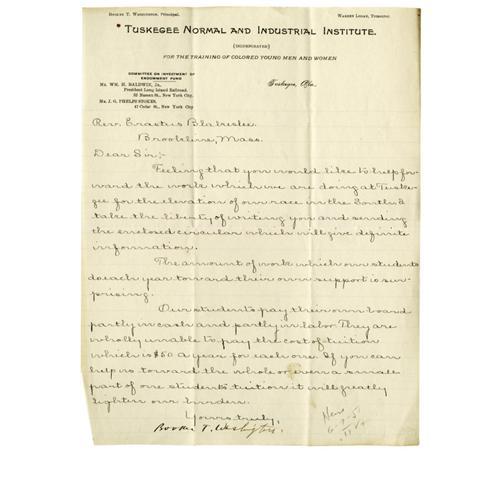 Booker T. Washington, Principal.
Warren Logan, Treasurer.
Tuskegee Normal and Industrial Institute.
(INCORPORATED)
FOR THE TRAINING OF COLORED YOUNG MEN AND WOMEN
COMMITTEE ON INVESTMENT OF
ENDOWMENT FUND
Mr. WM. H. BALDWIN, Jr.,
President Long Island Railroad.
Nassau St., New York City.
Mr. J. G. PHELPS STOKES,
47 Cedar St., New York City
Tuskegee, Ala.
Rev. Erastus Blakeslee.
Brookline, Mass.
Dear Sir;-
Feeling that you would like to help for-
ward the work which we are doing at Tuske-
gee for the elevation of our race in the South, I
take the liberty of writing you and sending
the enclosed circulars which will give definite
information.
The amount of work which our students
do each year toward their own support is sur-
prising.
Our students pay their own board
partly in cash and partly in labor. They are
wholly unable to pay the cost of tuition
which is $50 a year for each one. If you can
help us toward the whole or even a small
part of one student's tuition it will greatly
lighten our burden.
Yours truly,
Booker T. Washington.